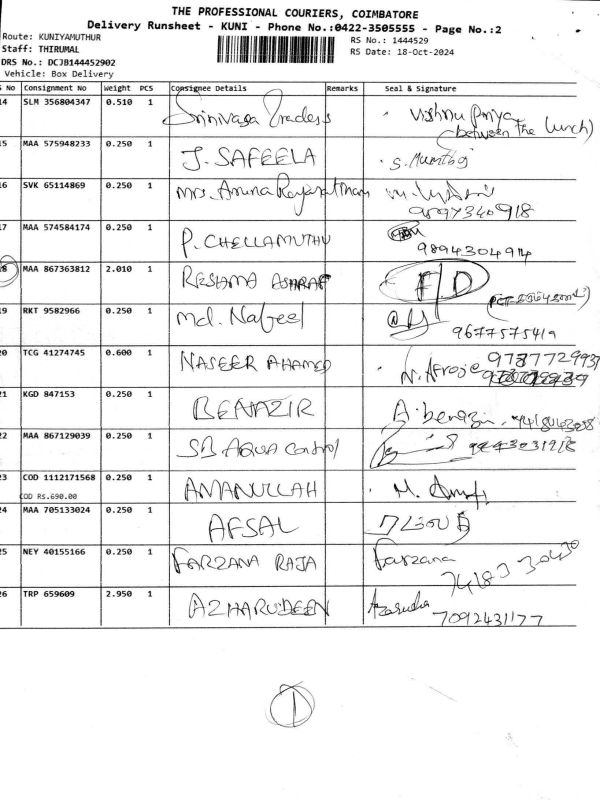 THE PROFESSIONAL COURIERS, COIMBATORE
Delivery Runsheet - KUNI - Phone No.:0422-3505555 - Page No.:2
Route: KUNIYAMUTHUR
RS No.: 1444529
Staff: THIRUMAL
RS Date: 18-Oct-2024
DRS No.: DCJB144452902
Vehicle: Box Delivery
S No Consignment No Weight PCS Consignee Details Remarks Seal & Signature
14 SLM 356804347 0.510 1 Srinivasa Traders Vishnu Priya
(between the lunch)
15 MAA 575948233 0.250 1 J. SAFEELA S. Mumthaj
16 SVK 65114869 0.250 1 Mrs. Aruna Rayarattnam
9897340918
17 MAA 574584174 0.250 1 P. CHELLAMUTHU
9894304914
18 MAA 867363812 2.010 1 RESHMA ASHRAF F/D
19 RKT 9582966 0.250 1 Md. Nafeel
9677575419
20 TCG 41274745 0.600 1 NASEER AHAMED N. Afroje 9787729937
21 KGD 847153 0.250 1 BENAZIR A. benazir
22 MAA 867129039 0.250 1 SB AQUA Control 9443031218
23 COD 1112171568 0.250 1 AMANULLAH M.
COD RS.690.00
24 MAA 705133024 0.250 1 AFSAL
25 NEY 40155166 0.250 1 FARZANA RAJA Farzana
74183 30430
26 TRP 659609 2.950 1 AZHARUDEEN
7092431177
1